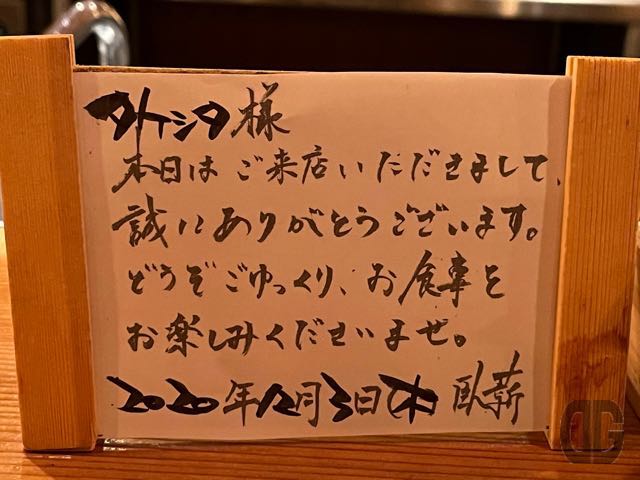 タケシタ様
本日はご来店いただきまして、
誠にありがとうございます。
どうぞごゆっくり、お食事を
お楽しみくださいませ。
2020年12月3日(木) 臥薪